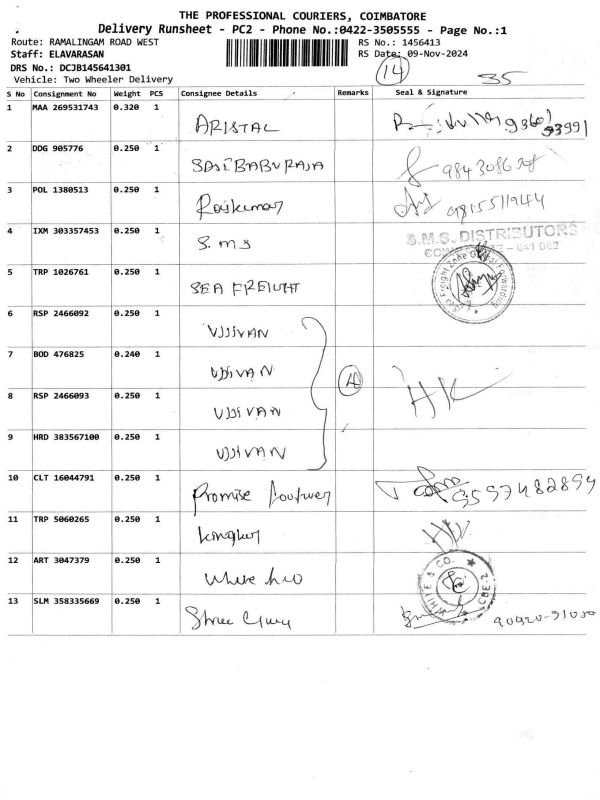 THE PROFESSIONAL COURIERS, COIMBATORE
Delivery Runsheet - PC2 - Phone No.:0422-3505555 - Page No.:1
Route: RAMALINGAM ROAD WEST RS No.: 1456413
Staff: ELAVARASAN RS Date: 09-Nov-2024
DRS No.: DCJB145641301
Vehicle: Two Wheeler Delivery 14 35
S No Consignment No Weight PCS Consignee Details Remarks Seal & Signature
1 MAA 269531743 0.320 1 ARISTAL
2 DDG 905776 0.250 1
3 POL 1380513 0.250 1 Rajkumar
4 IXM 303357453 0.250 1 S.M.S S.M.S. DISTRIBUTORS
5 TRP 1026761 0.250 1 SEA FREIGHT
6 RSP 2466092 0.250 1 UJJIVAN
7 BOD 476825 0.240 1 UJJIVAN 4
8 RSP 2466093 0.250 1 UJJIVAN HK
9 HRD 383567100 0.250 1 UJJIVAN
10 CLT 16044791 0.250 1 Promise footwer 9597482894
11 TRP 5060265 0.250 1
12 ART 3047379 0.250 1 WHITE & CO. CBE-2
13 SLM 358335669 0.250 1 Shree